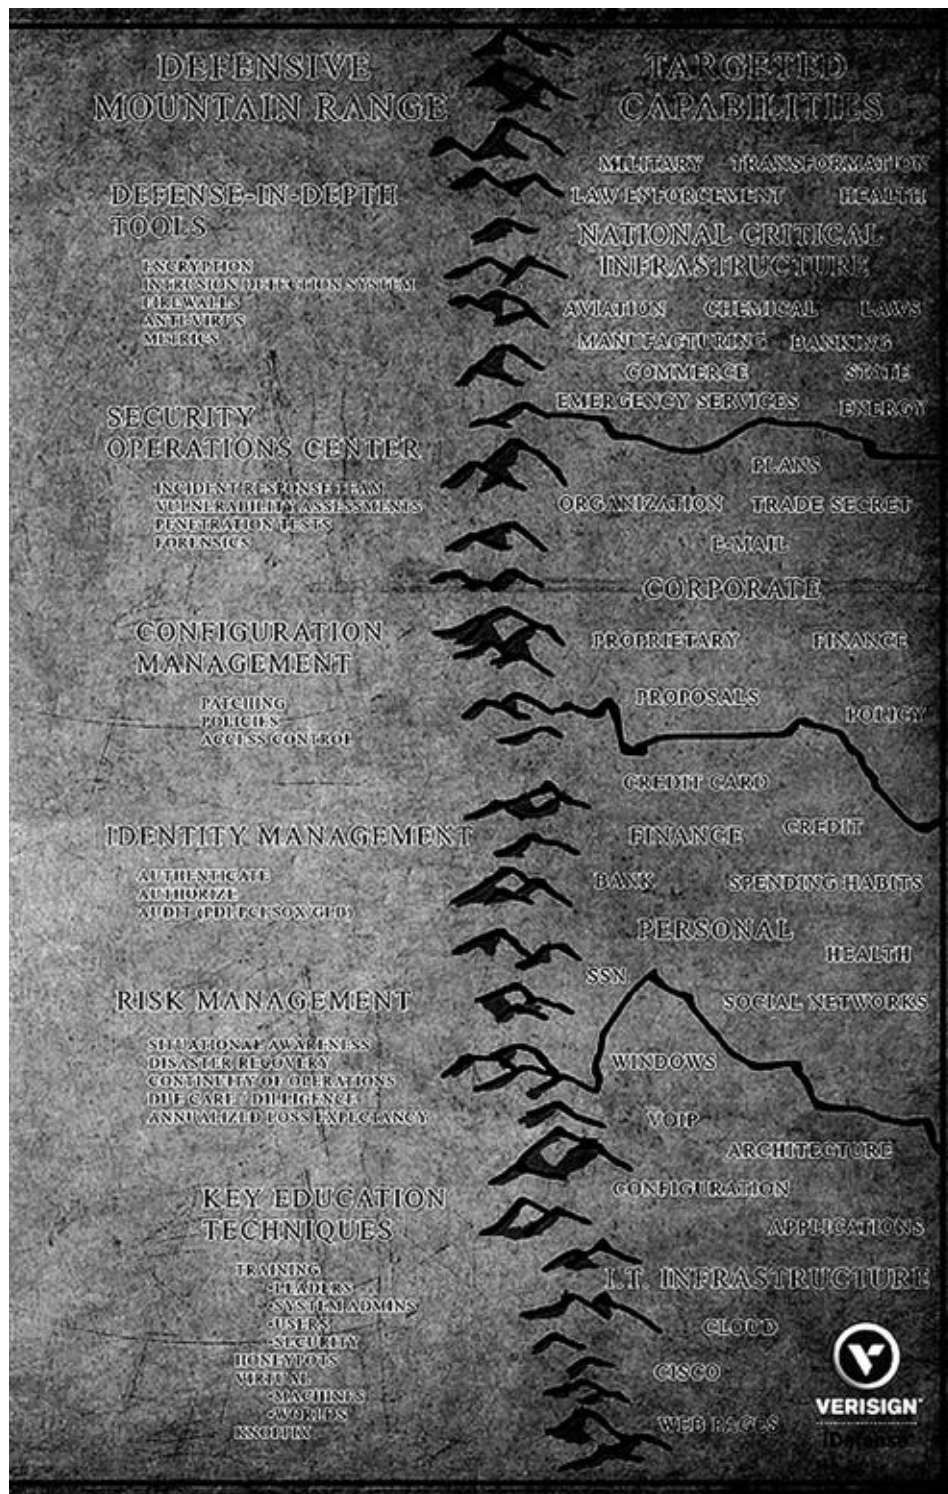 DEFENSIVE
MOUNTAIN RANGE
DEFENSE-IN-DEPTH
TOOLS
ENCRYPTION
INTRUSION DETECTION SYSTEM
FIREWALLS
ANTI-VIRUS
METRICS
SECURITY
OPERATIONS CENTER
INCIDENT RESPONSE TEAM
VULNERABILITY ASSESSMENTS
PENETRATION TESTS
FORENSICS
CONFIGURATION
MANAGEMENT
PATCHING
POLICIES
ACCESS CONTROL
IDENTITY MANAGEMENT
AUTHENTICATE
AUTHORIZE
AUDIT
RISK MANAGEMENT
SITUATIONAL AWARENESS
DISASTER RECOVERY
CONTINUITY OF OPERATIONS
DUE CARE / DILLIGENCE
ANNUALIZED LOSS EXPECTANCY
KEY EDUCATION
TECHNIQUES
TRAINING
•LEADERS
•SYSTEM ADMINS
•USERS
•SECURITY
HONEYPOTS
VIRTUAL
•MACHINES
•WORLDS
KNOPPIX
TARGETED
CAPABILITIES
MILITARY TRANSFORMATION
LAW ENFORCEMENT HEALTH
NATIONAL CRITICAL
INFRASTRUCTURE
AVIATION CHEMICAL LAWS
MANUFACTURING BANKING
COMMERCE STATE
EMERGENCY SERVICES ENERGY
PLANS
ORGANIZATION TRADE SECRET
E-MAIL
CORPORATE
PROPRIETARY FINANCE
PROPOSALS
POLICY
CREDIT CARD
FINANCE CREDIT
BANK SPENDING HABITS
PERSONAL
HEALTH
SSN
SOCIAL NETWORKS
WINDOWS
VOIP
ARCHITECTURE
CONFIGURATION
APPLICATIONS
I.T. INFRASTRUCTURE
CLOUD
CISCO
WEB PAGES
VERISIGN
iDefense